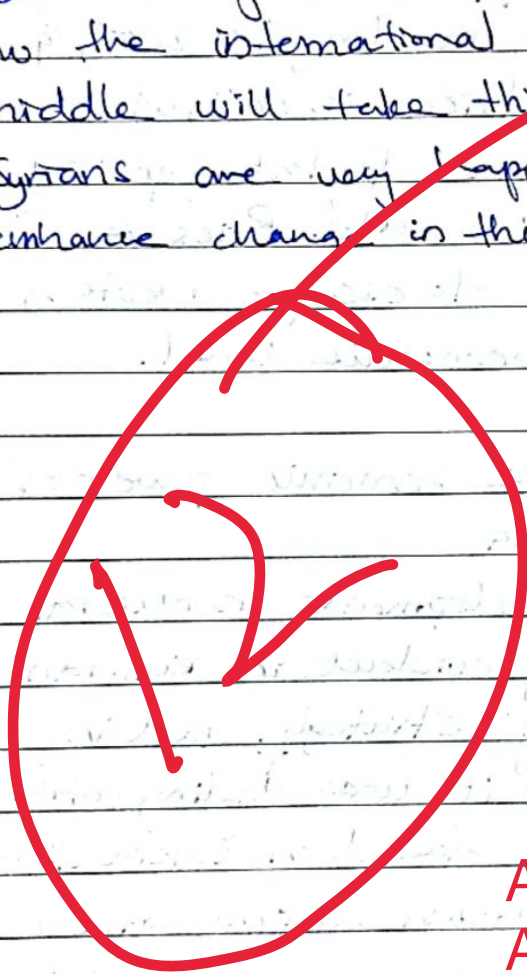 the international
middle will take thi
Syrians are very happ
enhance change in thi
12
A
A